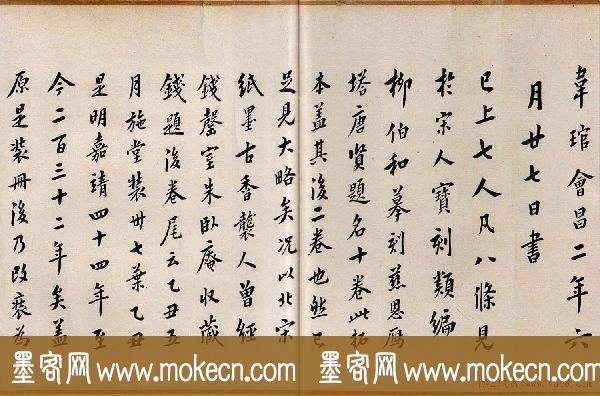 韋琯會昌二年六
月廿七日書
已上七人凡八條見
於宋人寶刻類編
柳伯和摹刻慈恩鴈
塔唐賢題名十卷此拓
本盖其後二卷也然已
足見大略矣况以北宋
紙墨古香襲人曾經
錢罄室朱臥庵收藏
錢題後卷尾云乙丑五
月施堂裝卅七葉乙丑
是明嘉靖四十四年至
今二百三十二年矣盖
原是裝冊後乃改裱為
墨客网 www.mokecn.com 墨客网 www.mokecn.com